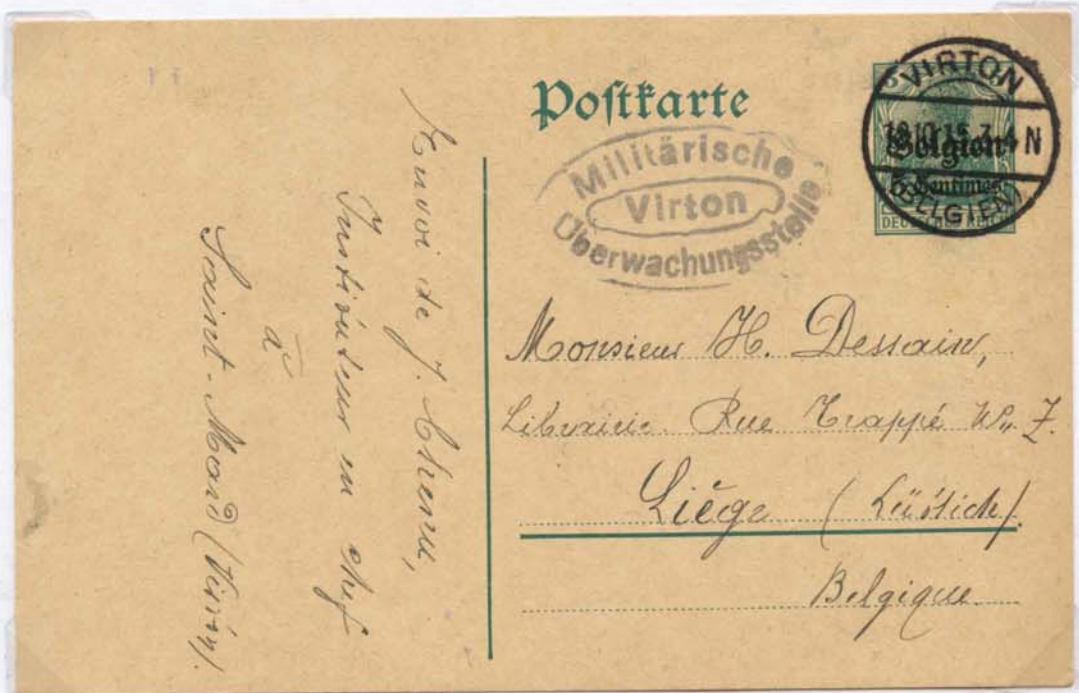 Postkarte
VIRTON
(BELGIEN)
Belgien
5 Centimes
DEUTSCHES REICH
Militärische
Virton
Überwachungsstelle
Monsieur H. Dessain,
Librairie Rue Trappé
Liège (Lüttich).
Belgique
Envoi de J. Chenu,
Instituteur en chef
à
Saint-Mard (Virton).